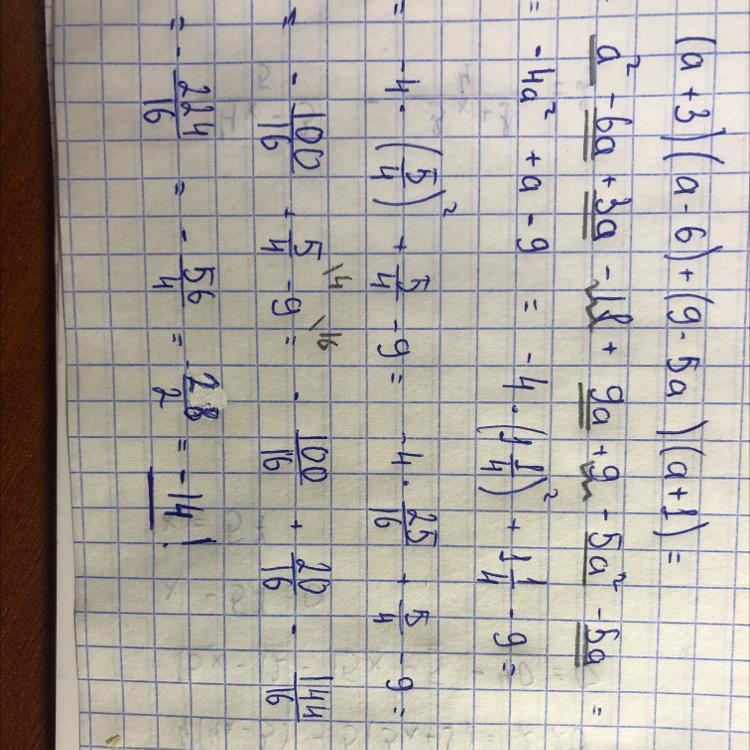 (a + 3)(a - 6) + (9 - 5a)(a + 1) =
a² - 6a + 3a - 18 + 9a + 9 - 5a² - 5a =
= -4a² + a - 9 = -4 · (1 1/4)² + 1 1/4 - 9 =
= -4 · (5/4)² + 5/4 - 9 = -4 · 25/16 + 5/4 - 9 =
= - 100/16 + 5/4 \4 - 9 \16 = - 100/16 + 20/16 - 144/16
= - 224/16 = - 56/4 = - 28/2 = -14!